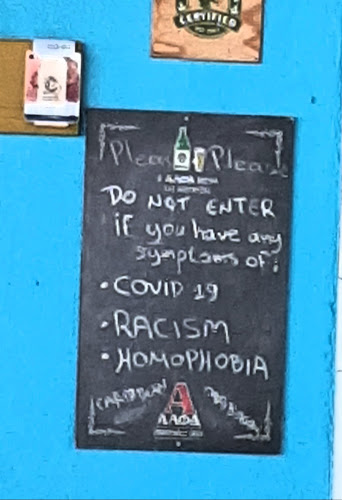 CERTIFIED
Please Please
DO NOT ENTER
if you have any
symptoms of:
• COVID 19
• RACISM
• HOMOPHOBIA
CARIBBEAN
A